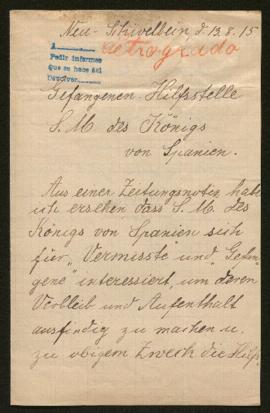 Neu-Schivelbein d. 13.8.15
Petrogrado
1
Pedir informes
Que se hace así
Devolver
Gefangenen-Hilfsstelle
S. M. des Königs
von Spanien.
Aus einer Zeitungsnotiz habe
ich ersehen dass S. M. des
Königs von Spanien sich
für „Vermisste" und „Gefan-
gene" interessiert, um deren
Verbleib und Aufenthalt
ausfindig zu machen u.
zu obigem Zweck die Hilfs-